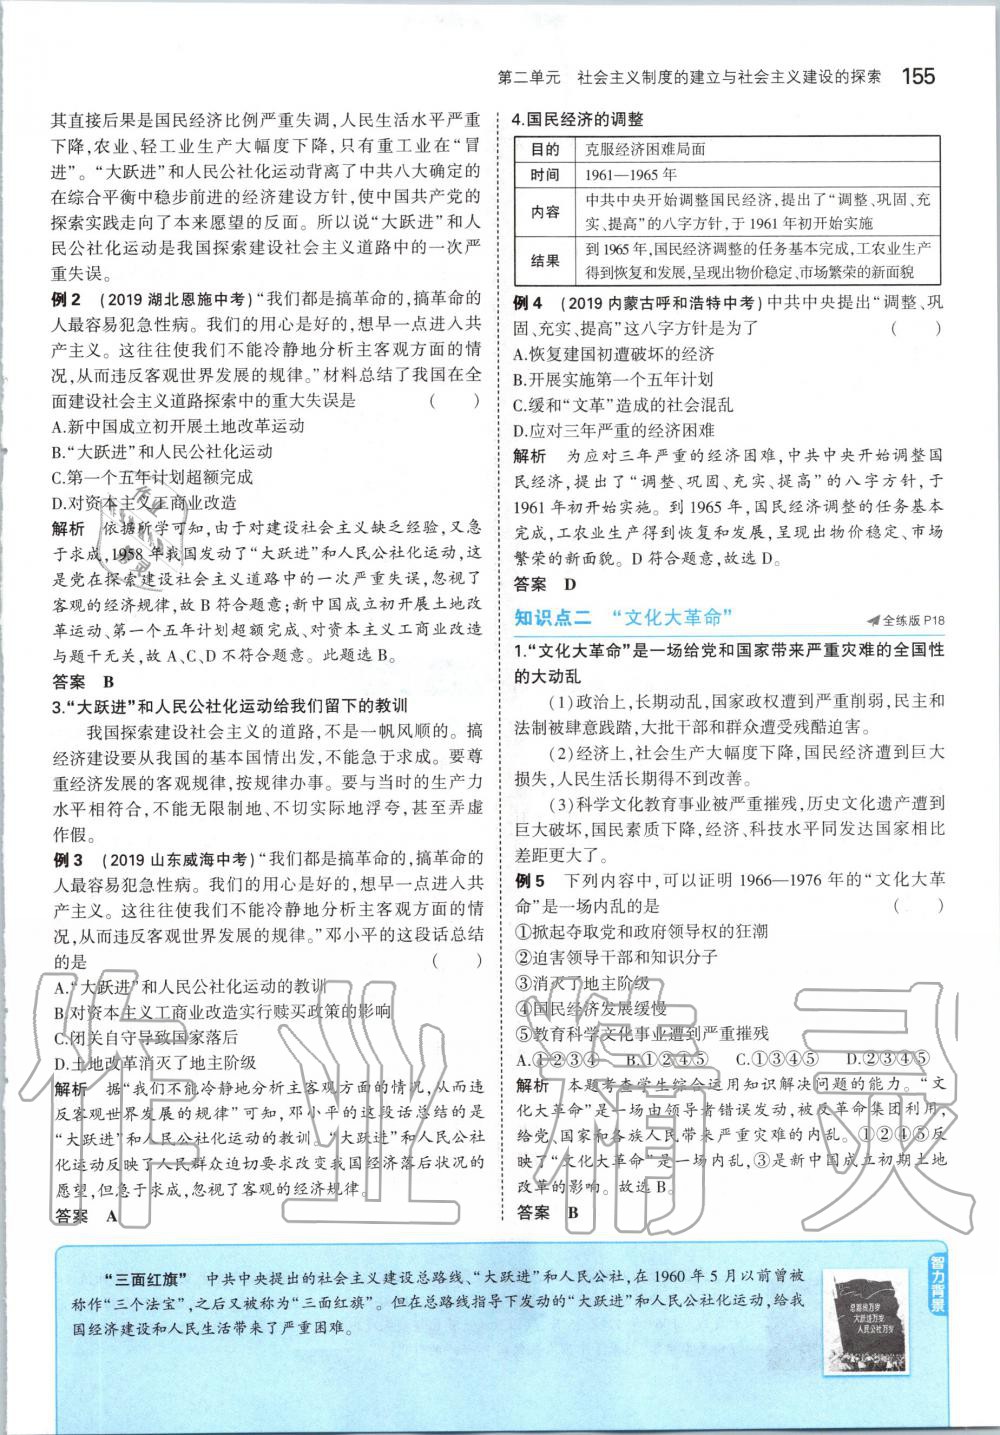 第二单元　社会主义制度的建立与社会主义建设的探索　155
其直接后果是国民经济比例严重失调,人民生活水平严重
下降,农业、轻工业生产大幅度下降,只有重工业在“冒
进”。“大跃进”和人民公社化运动背离了中共八大确定的
在综合平衡中稳步前进的经济建设方针,使中国共产党的
探索实践走向了本来愿望的反面。所以说“大跃进”和人
民公社化运动是我国探索建设社会主义道路中的一次严
重失误。
例 2　(2019 湖北恩施中考)“我们都是搞革命的,搞革命的
人最容易犯急性病。我们的用心是好的,想早一点进入共
产主义。这往往使我们不能冷静地分析主客观方面的情
况,从而违反客观世界发展的规律。”材料总结了我国在全
面建设社会主义道路探索中的重大失误是　(　　)
A.新中国成立初开展土地改革运动
B.“大跃进”和人民公社化运动
C.第一个五年计划超额完成
D.对资本主义工商业改造
解析　依据所学可知,由于对建设社会主义缺乏经验,又急
于求成,1958 年我国发动了“大跃进”和人民公社化运动,这
是党在探索建设社会主义道路中的一次严重失误,忽视了
客观的经济规律,故 B 符合题意;新中国成立初开展土地改
革运动、第一个五年计划超额完成、对资本主义工商业改造
与题干无关,故 A、C、D 不符合题意。此题选 B。
答案　B
3.“大跃进”和人民公社化运动给我们留下的教训
我国探索建设社会主义的道路,不是一帆风顺的。搞
经济建设要从我国的基本国情出发,不能急于求成。要尊
重经济发展的客观规律,按规律办事。要与当时的生产力
水平相符合,不能无限制地、不切实际地浮夸,甚至弄虚
作假。
例 3　(2019 山东威海中考)“我们都是搞革命的,搞革命的
人最容易犯急性病。我们的用心是好的,想早一点进入共
产主义。这往往使我们不能冷静地分析主客观方面的情
况,从而违反客观世界发展的规律。”邓小平的这段话总结
的是　(　　)
A.“大跃进”和人民公社化运动的教训
B.对资本主义工商业改造实行赎买政策的影响
C.闭关自守导致国家落后
D.土地改革消灭了地主阶级
解析　据“我们不能冷静地分析主客观方面的情况,从而违
反客观世界发展的规律”可知,邓小平的这段话总结的是
“大跃进”和人民公社化运动的教训。“大跃进”和人民公社
化运动反映了人民群众迫切要求改变我国经济落后状况的
愿望,但急于求成,忽视了客观的经济规律。
答案　A
4.国民经济的调整
目的　克服经济困难局面
时间　1961—1965 年
内容　中共中央开始调整国民经济,提出了“调整、巩固、充
实、提高”的八字方针,于 1961 年初开始实施
结果　到 1965 年,国民经济调整的任务基本完成,工农业生产
得到恢复和发展,呈现出物价稳定、市场繁荣的新面貌
例 4　(2019 内蒙古呼和浩特中考)中共中央提出“调整、巩
固、充实、提高”这八字方针是为了　(　　)
A.恢复建国初遭破坏的经济
B.开展实施第一个五年计划
C.缓和“文革”造成的社会混乱
D.应对三年严重的经济困难
解析　为应对三年严重的经济困难,中共中央开始调整国
民经济,提出了“调整、巩固、充实、提高”的八字方针,于
1961 年初开始实施。到 1965 年,国民经济调整的任务基本
完成,工农业生产得到恢复和发展,呈现出物价稳定、市场
繁荣的新面貌。D 符合题意,故选 D。
答案　D
知识点二　“文化大革命”　全练版 P18
1.“文化大革命”是一场给党和国家带来严重灾难的全国性
的大动乱
(1)政治上,长期动乱,国家政权遭到严重削弱,民主和
法制被肆意践踏,大批干部和群众遭受残酷迫害。
(2)经济上,社会生产大幅度下降,国民经济遭到巨大
损失,人民生活长期得不到改善。
(3)科学文化教育事业被严重摧残,历史文化遗产遭到
巨大破坏,国民素质下降,经济、科技水平同发达国家相比
差距更大了。
例 5　下列内容中,可以证明 1966—1976 年的“文化大革
命”是一场内乱的是　(　　)
①掀起夺取党和政府领导权的狂潮
②迫害领导干部和知识分子
③消灭了地主阶级
④国民经济发展缓慢
⑤教育科学文化事业遭到严重摧残
A.①②③④　B.①②④⑤　C.①③④⑤　D.②③④⑤
解析　本题考查学生综合运用知识解决问题的能力。“文
化大革命”是一场由领导者错误发动,被反革命集团利用,
给党、国家和各族人民带来严重灾难的内乱。①②④⑤反
映了“文化大革命”是一场内乱,③是新中国成立初期土地
改革的影响。故选 B。
答案　B
智力背景
“三面红旗”　中共中央提出的社会主义建设总路线、“大跃进”和人民公社,在 1960 年 5 月以前曾被
称作“三个法宝”,之后又被称为“三面红旗”。但在总路线指导下发动的“大跃进”和人民公社化运动,给我
国经济建设和人民生活带来了严重困难。
总路线万岁
大跃进万岁
人民公社万岁
作业精灵